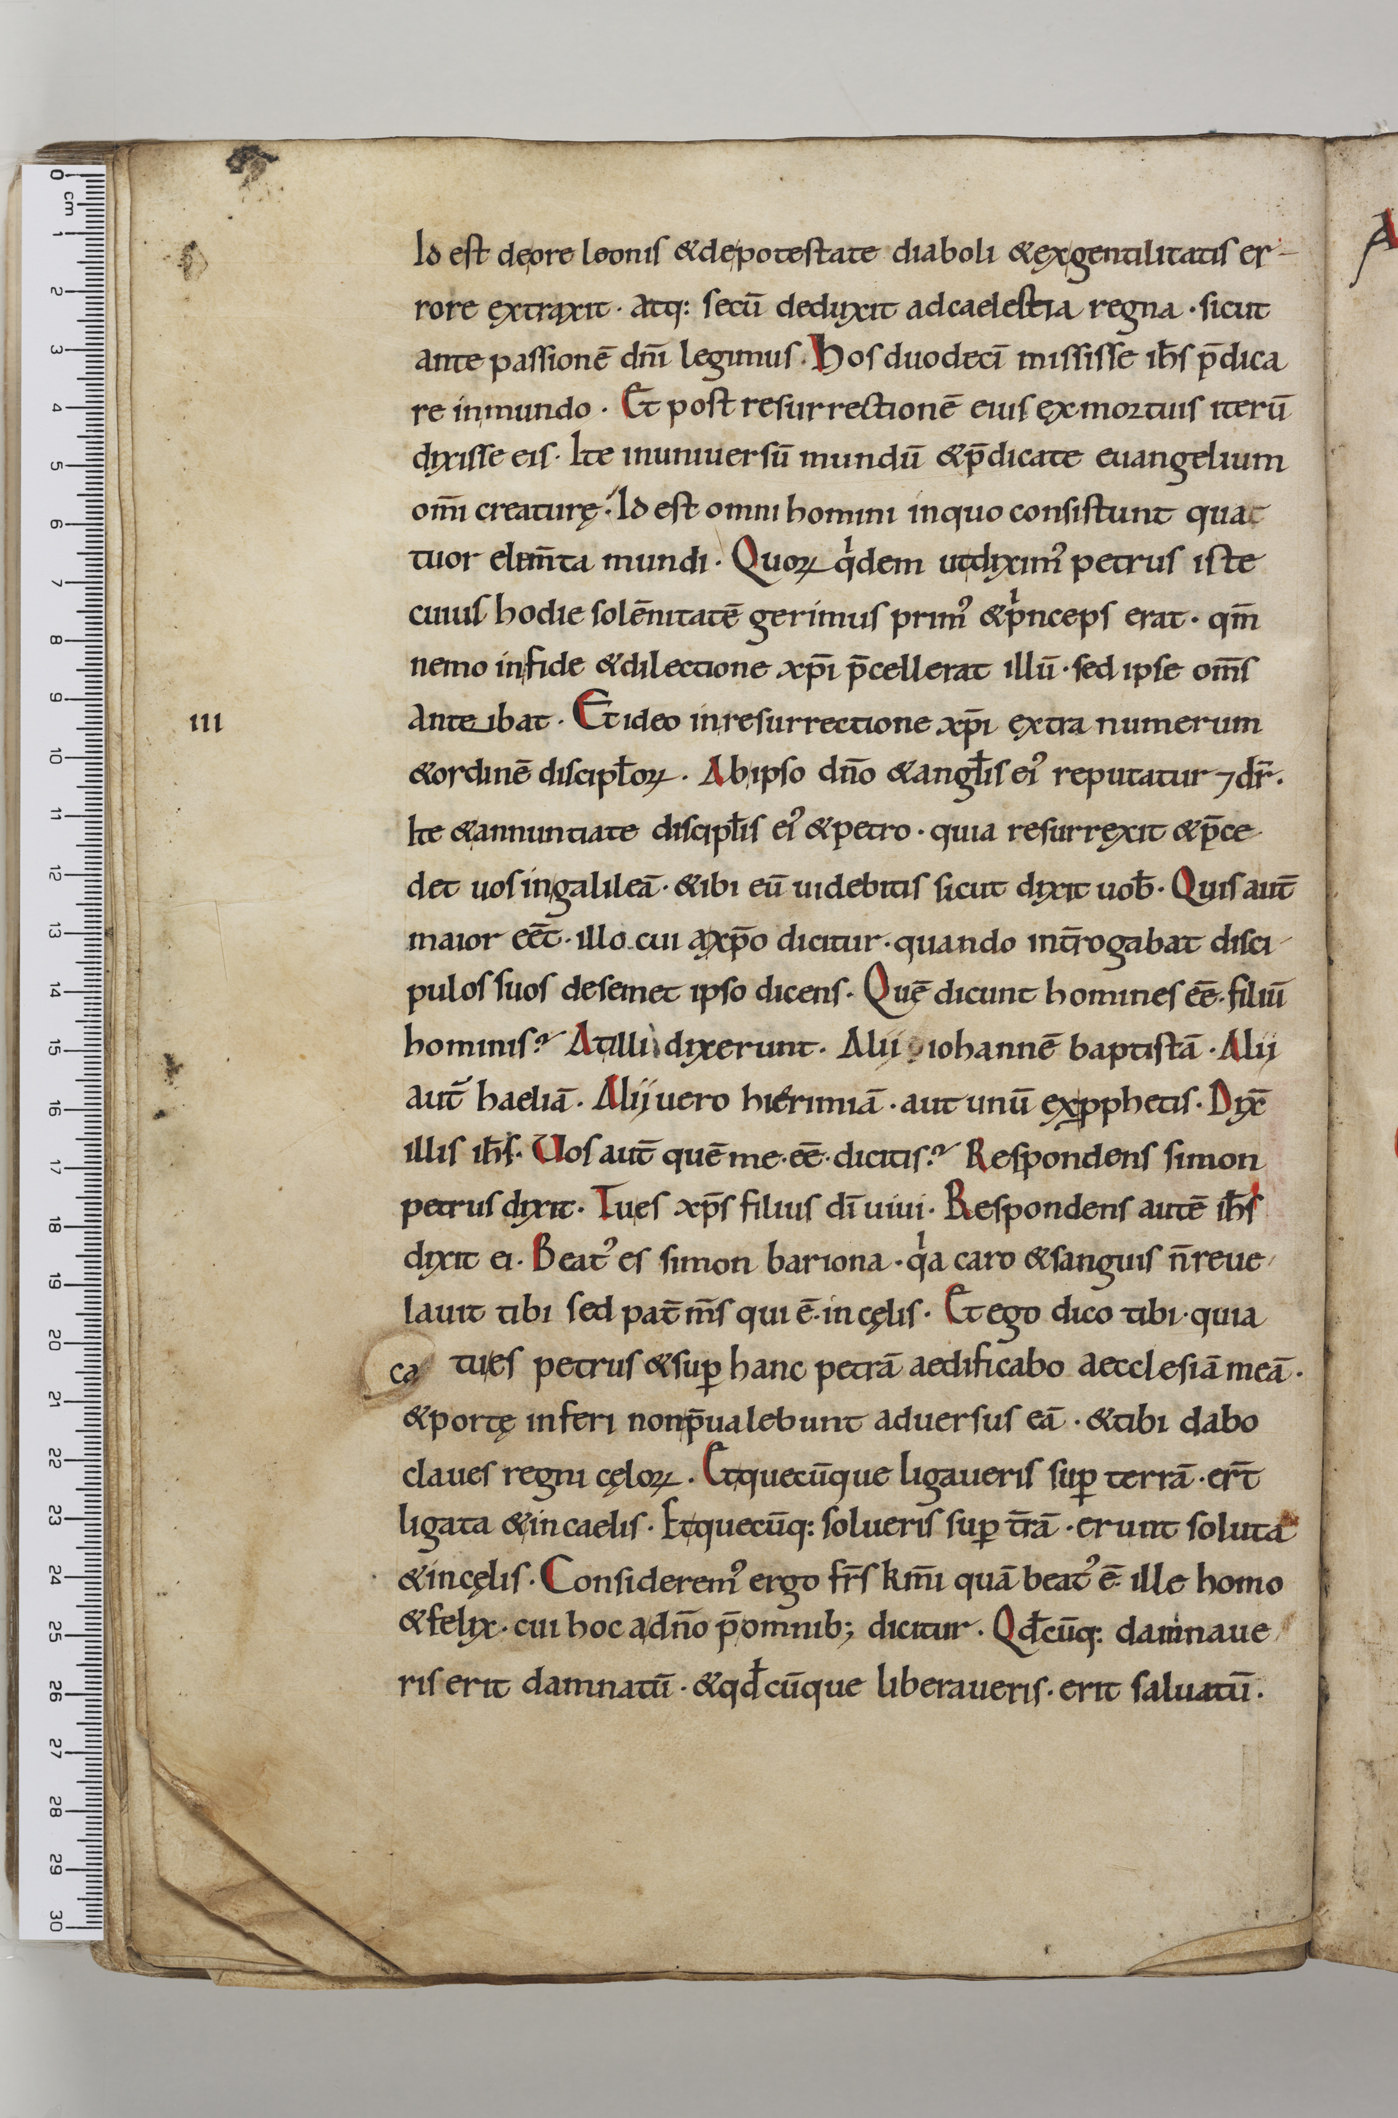 Id est deore leonis &depotestate diaboli &exgentilitatis er-
rore extraxit · atq: secū deduxit adcaelestia regna · sicut
ante passionē dn̄i legimus · Hos duodecī misisse ih̄s p̄dica
re inmundo · Et post resurrectionē eius ex mortuis iterū
dixisse eis · Ite inuniuersū mundū &p̄dicate euangelium
om̄i creaturę · Id est omni homini inquo consistunt quat
tuor elem̄ta mundi · Quoꝝ qͥdem utdiximꝰ petrus iste
cuius hodie solēnitatē gerimus primꝰ &pͥnceps erat · qm̄
nemo infide &dilectione xp̄i p̄cellerat illū · sed ipse om̄s
anteibat · Et ideo inresurrectione xp̄i extra numerum
III
&ordinē discipl̄oꝝ · Ab ipso dn̄o &angl̄is eiꝰ reputatur ⁊ dr̄ ·
Ite &annuntiate discipl̄is eiꝰ &petro · quia resurrexit &p̄ce
det uos ingalileā · &ibi eū uidebitis sicut dixit uob̄ · Quis aut̄
maior eēt · illo cui axp̄o dicitur · quando int̄rogabat disci-
pulos suos desemet ipso dicens · Quē dicunt homines eē · filiū
hominis? At illi dixerunt · Alij iohannē baptistā · Alij
aut̄ haeliā · Alij uero hierimiā · aut unū exꝓphetis · Dix̄
illis ih̄s · Uos aut̄ quē me · eē · dicitis? Respondens simon
petrus dixit · Tu es xp̄s filius dī uiui · Respondens autē ih̄s
dixit ei · Beatꝰ es simon bariona · qͥa caro &sanguis n̄ reue
lauit tibi sed pat̄ m̄s qui ē · in cęlis · Et ego dico tibi · quia
ca tu es petrus &suꝑ hanc petrā aedificabo aecclesiā meā ·
&portę inferi nonp̄ualebunt aduersus eā · &tibi dabo
claues regni cęloꝝ · Et quecūque ligaueris suꝑ terrā · er̄t
ligata &in caelis · Et quecūq: solueris suꝑ t̄rā · erunt soluta
&incęlis · Consideremꝰ ergo fr̄s km̄i quā beatꝰ ē · ille homo
&felix · cui hoc adn̄o p̄omnib; dicitur · Qd̄cūq: damnaue
ris erit damnatū · &qd̄cūque liberaueris · erit saluatū ·